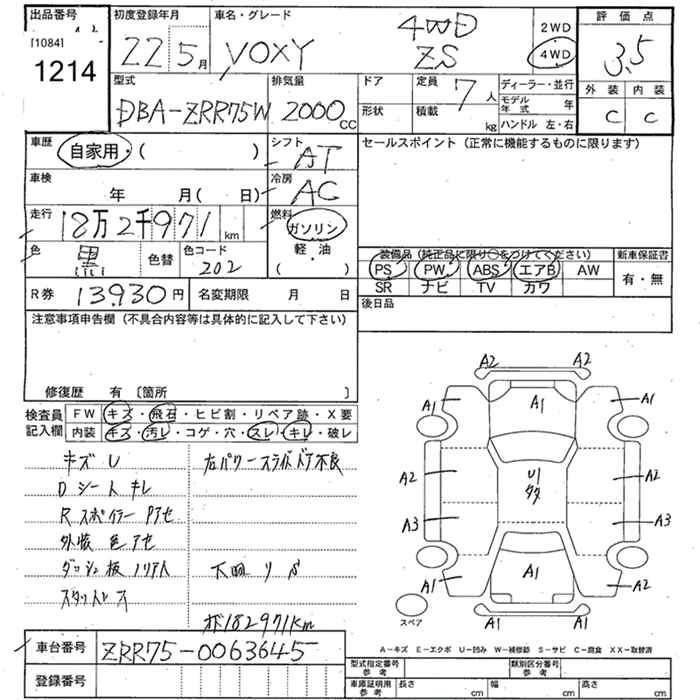 出品番号
[1084]
1214
初度登録年月
22 5月
車名・グレード
VOXY
4WD
ZS
2WD
4WD
評価点
3.5
外装 内装
C C
型式
DBA-ZRR75W
排気量
2000 CC
ドア
形状
定員 7人
積載 kg
ディーラー・並行
モデル年式 年
ハンドル 左・右
車歴
自家用・( )
シフト
AT
セールスポイント (正常に機能するものに限ります)
車検
年 月( 日)
冷房
AC
走行
18万2千971 km
燃料
ガソリン
軽・油
( )
色 黒 色替
色コード
202
装備品 (純正品に限り○をつけてください)
PS PW ABS エアB AW
SR ナビ TV カワ
新車保証書
有・無
R券 13930円
名変期限 月 日
後日品
注意事項申告欄 (不具合内容等は具体的に記入して下さい)
修復歴 有 〔箇所 〕
検査員記入欄
FW キズ・飛石・ヒビ割・リペア跡・X要
内装 キズ・汚レ・コゲ・穴・スレ・キレ・破レ
キズU
右パワースライドドア不良
Dシートキレ
Rスポイラーアセ
外装色アセ
ダッシュ板ノリアト
下回リサビ
スタッドレス
メ182971km
A2 A2
A1 A1 A1
A2 U1 A2
多々
A3 A3
A1 A1 A2
A1 A1
スペア
A-キズ E-エクボ U-凹み W-補修跡 S-サビ C-腐食 XX-取替済
車台番号
ZRR75-0063645
登録番号
型式指定番号
参考
類別区分番号
参考
車庫証明用
参考
長さ cm
幅 cm
高さ cm